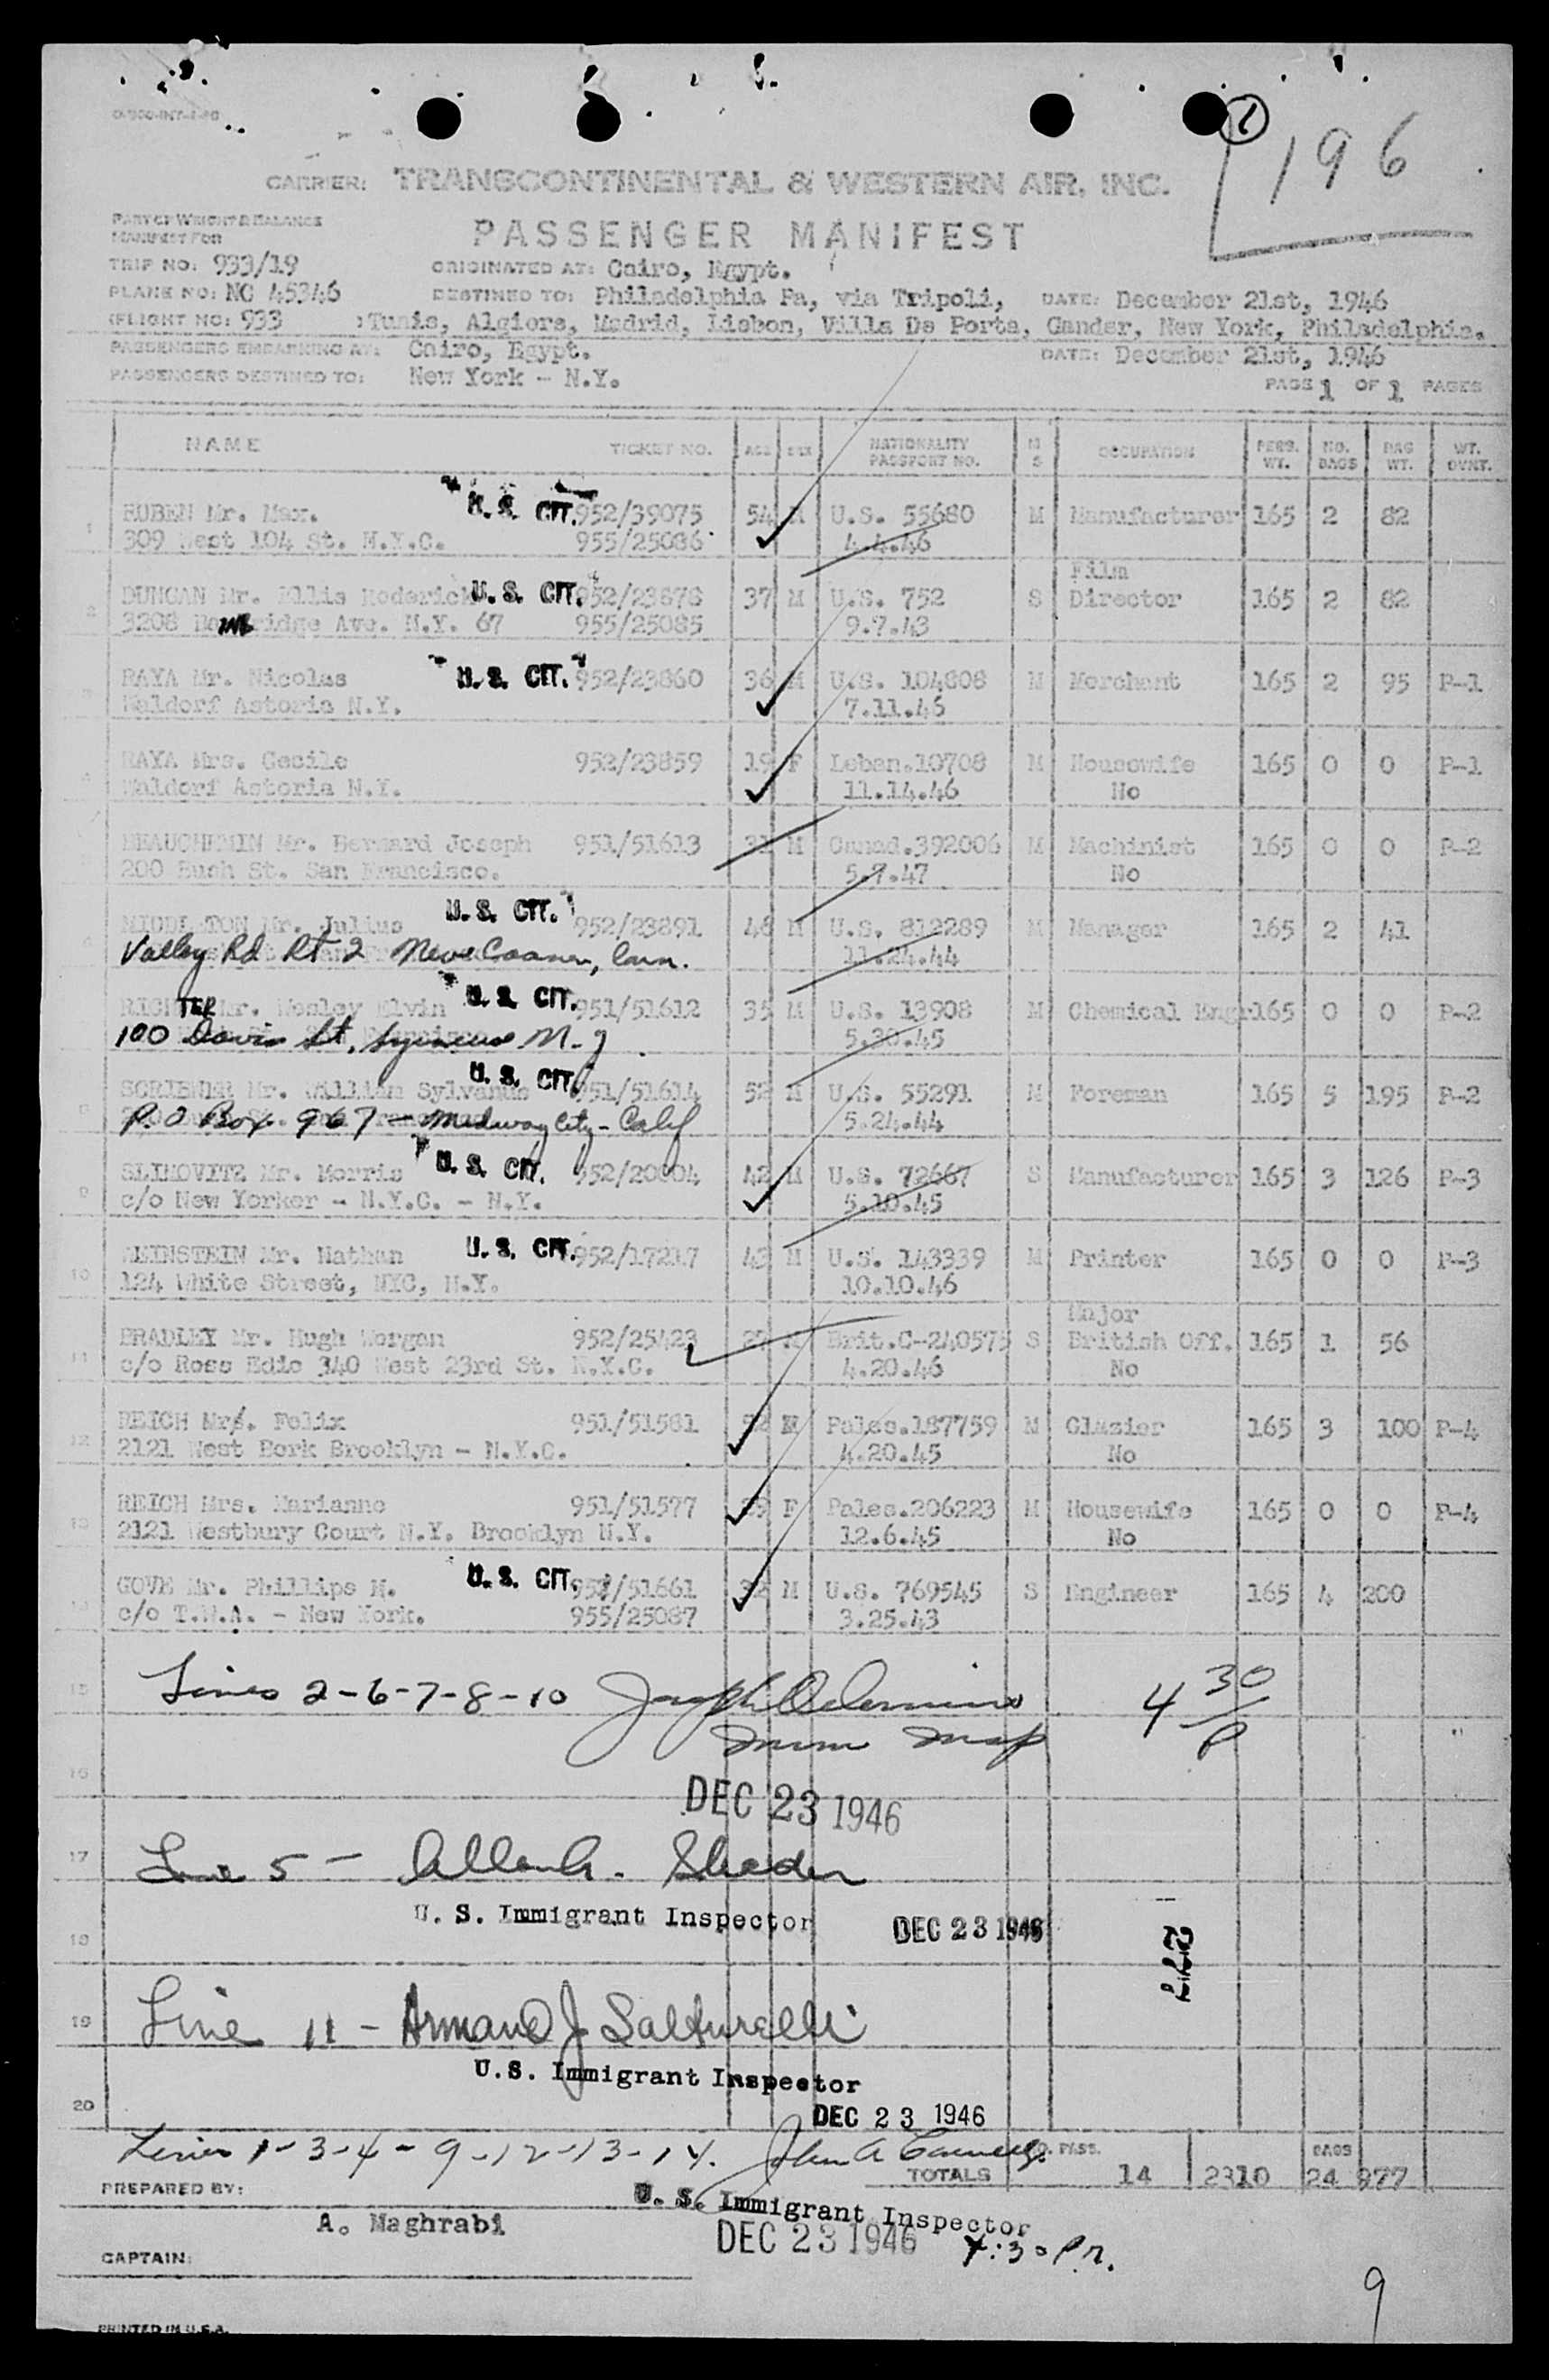 1
196
CARRIER: TRANSCONTINENTAL & WESTERN AIR, INC.
PART OF WEIGHT & BALANCE
MANIFEST FOR
PASSENGER MANIFEST
TRIP NO: 933/19 ORIGINATED AT: Cairo, Egypt.
PLANE NO: NC 45346 DESTINED TO: Philadelphia Pa, via Tripoli, DATE: December 21st, 1946
(FLIGHT NO: 933 :Tunis, Algiers, Madrid, Lisbon, Villa De Porta, Gander, New York, Philadelphia.
PASSENGERS EMBARKING AT: Cairo, Egypt. DATE: December 21st, 1946
PASSENGERS DESTINED TO: New York - N.Y.
PAGE 1 OF 1 PAGES
NAME TICKET NO. AGE SEX NATIONALITY PASSPORT NO. M S OCCUPATION PERS. WT. NO. BAGS BAG WT. WT. OVNT.
1 RUBEN Mr. Max. U.S. CIT. 952/39075 54 M U.S. 55680 M Manufacturer 165 2 82
309 West 104 St. N.Y.C. 955/25086 4.4.46
Film
2 DUNCAN Mr. Ellis Roderick U.S. CIT. 952/23878 37 M U.S. 752 S Director 165 2 82
3208 Ave. N.Y. 67 955/25085 9.7.43
3 RAYA Mr. Nicolas U.S. CIT. 952/23860 36 M U.S. 104808 M Merchant 165 2 95 P-1
Waldorf Astoria N.Y. 7.11.46
4 RAYA Mrs. Cecile 952/23859 19 F Leban.10708 M Housewife 165 0 0 P-1
Waldorf Astoria N.Y. 11.14.46 No
5 BEAUCHEMIN Mr. Bernard Joseph 951/51613 31 M Canad.392006 M Machinist 165 0 0 P-2
200 Bush St. San Francisco. 5.7.47 No
6 MIDDLETON Mr. Julius U.S. CIT. 952/23891 48 M U.S. 812289 M Manager 165 2 41
Valley Rd Rt 2 New Canaan, Conn. 11.24.44
7 RICHTER Mr. Wesley Elvin U.S. CIT. 951/51612 35 M U.S. 13908 M Chemical Engr 165 0 0 P-2
100 Davis St, N.Y 5.30.45
8 SCRIBNER Mr. William Sylvanus U.S. CIT. 951/51614 52 M U.S. 55291 M Foreman 165 5 195 P-2
P.O Box 967 - Midway City - Calif 5.24.44
9 SLIMOVITZ Mr. Morris U.S. CIT. 952/20804 42 M U.S. 72667 S Manufacturer 165 3 126 P-3
c/o New Yorker - N.Y.C. - N.Y. 5.10.45
10 WEINSTEIN Mr. Nathan U.S. CIT. 952/17217 43 M U.S. 143339 M Printer 165 0 0 P-3
124 White Street, NYC, N.Y. 10.10.46
Major
11 BRADLEY Mr. Hugh Morgan 952/25423 27 M Brit.C-240575 S British Off. 165 1 56
c/o Ross Edie 340 West 23rd St. N.Y.C. 4.20.46 No
12 REICH Mr. Felix 951/51581 M Pales.187759 M Glazier 165 3 100 P-4
2121 West Bork Brooklyn - N.Y.C. 4.20.45 No
13 REICH Mrs. Marianne 951/51577 F Pales.206223 M Housewife 165 0 0 P-4
2121 Westbury Court N.Y. Brooklyn N.Y. 12.6.45 No
14 GOVE Mr. Phillips N. U.S. CIT. 951/51661 32 M U.S. 769545 S Engineer 165 4 200
c/o T.W.A. - New York. 955/25087 3.25.43
15 Lines 2-6-7-8-10 Joseph 4 30/P
Imm Insp
16
DEC 23 1946
17 Line 5 - Allen A. Shader
U. S. Immigrant Inspector DEC 23 1946
18
277
19 Line 11 - Armand J. Salturelli
U.S. Immigrant Inspector
20 DEC 23 1946
Lines 1-3-4-9-12-13-14. John A
NO. PASS. BAGS
TOTALS 14 2310 24 977
PREPARED BY: U. S. Immigrant Inspector
A. Maghrabi DEC 23 1946 4:30 P.M.
CAPTAIN:
9
PRINTED IN U.S.A.